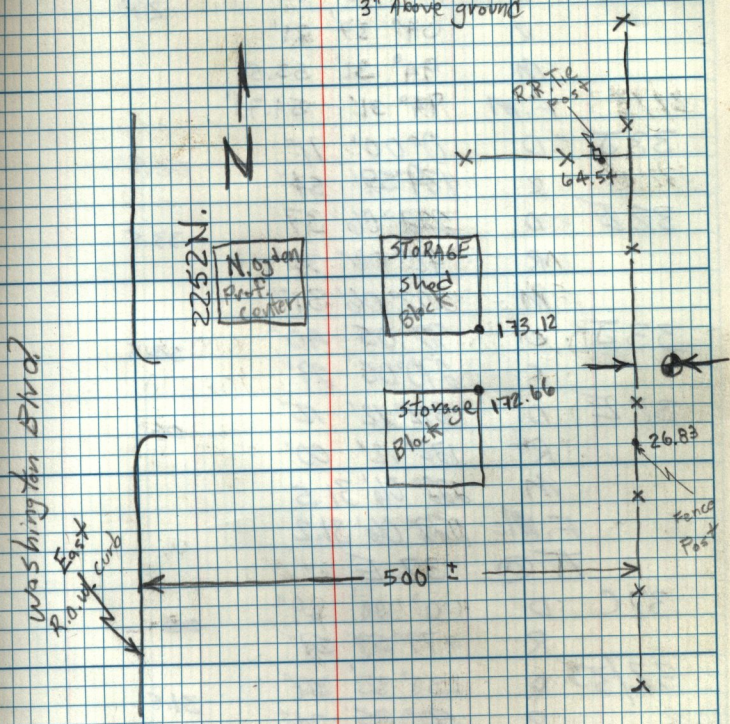 3" Above ground
R.R. Tie
post
64.54
N
2252 N.
N. Ogden
Prof.
Center.
STORAGE
Shed
Block
173.12
Storage
Block
172.66
26.83
Fence
Post
Washington Blvd
East
R.O.W. curb
500' ±